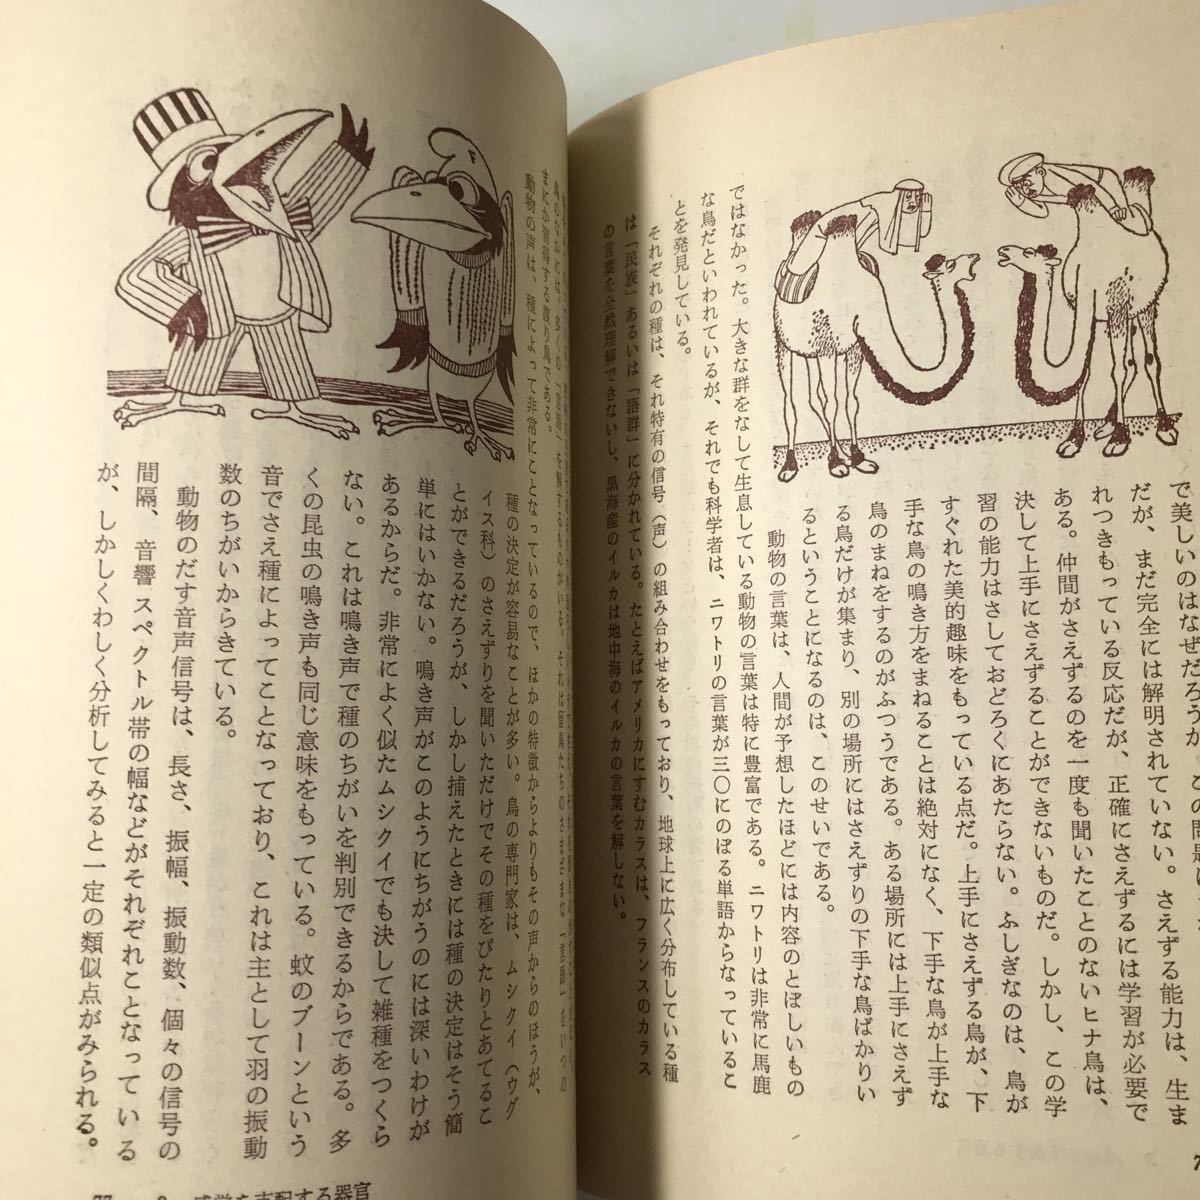 で美しいのはなぜだろうか。この問題は、
だが、まだ完全には解明されていない。さえずる能力は、生ま
れつきもっている反応だが、正確にさえずるには学習が必要で
ある。仲間がさえずるのを一度も聞いたことのないヒナ鳥は、
決して上手にさえずることができないものだ。しかし、この学
習の能力はさしておどろくにあたらない。ふしぎなのは、鳥が
すぐれた美的趣味をもっている点だ。上手にさえずる鳥が、下
手な鳥の鳴き方をまねることは絶対になく、下手な鳥が上手な
鳥のまねをするのがふつうである。ある場所には上手にさえず
る鳥だけが集まり、別の場所にはさえずりの下手な鳥ばかりい
るということになるのは、このせいである。
動物の言葉は、人間が予想したほどには内容のとぼしいもの
ではなかった。大きな群をなして生息している動物の言葉は特に豊富である。ニワトリは非常に馬鹿
な鳥だといわれているが、それでも科学者は、ニワトリの言葉が三〇にのぼる単語からなっているこ
とを発見している。
それぞれの種は、それ特有の信号（声）の組み合わせをもっており、地球上に広く分布している種
は「民族」あるいは「語群」に分かれている。たとえばアメリカにすむカラスは、フランスのカラス
の言葉を全然理解できないし、黒海産のイルカは地中海のイルカの言葉を解しない。
鳥のなかには、多くの「言語」を解するものがいる。それは留鳥たちのさまざまな「言語」をいつの
まにか習得する渡り鳥である。
動物の声は、種によって非常にことなっているので、ほかの特徴からよりもその声からのほうが、
種の決定が容易なことが多い。鳥の専門家は、ムシクイ（ウグ
イス科）のさえずりを聞いただけでその種をぴたりとあてるこ
とができるだろうが、しかし捕えたときには種の決定はそう簡
単にはいかない。鳴き声がこのようにちがうのには深いわけが
あるからだ。非常によく似たムシクイでも決して雑種をつくら
ない。これは鳴き声で種のちがいを判別できるからである。多
くの昆虫の鳴き声も同じ意味をもっている。蚊のブーンという
音でさえ種によってことなっており、これは主として羽の振動
数のちがいからきている。
動物のだす音声信号は、長さ、振幅、振動数、個々の信号の
間隔、音響スペクトル帯の幅などがそれぞれことなっている
が、しかしくわしく分析してみると一定の類似点がみられる。
77
感覚を支配する器官